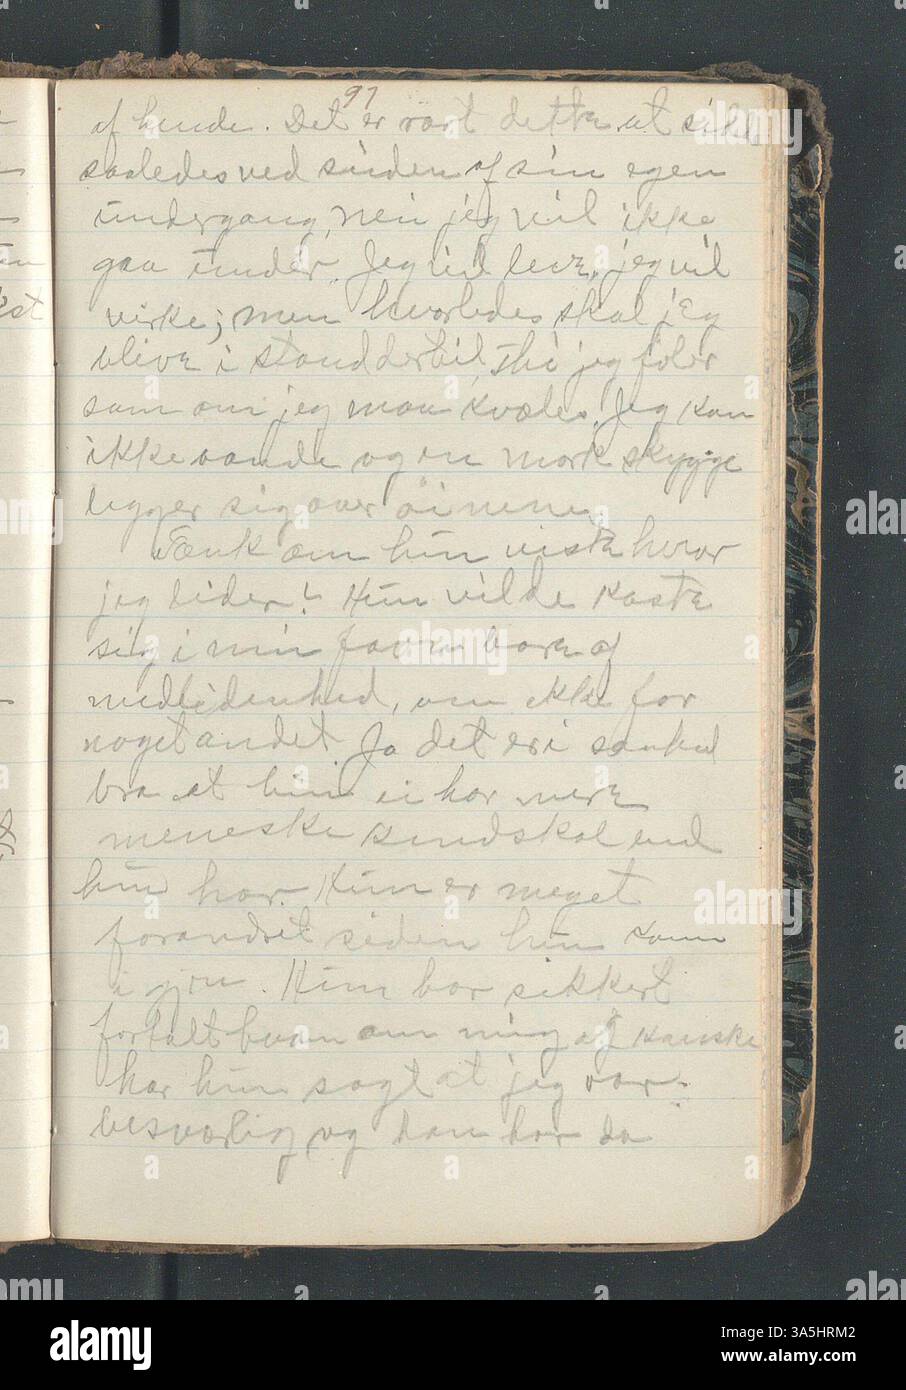 97
af hende. Det er rart dette at sidde
saaledes ved siden af sin egen
undergang, nei jeg vil ikke
gaa under. Jeg vil leve, jeg vil
virke; men hvorledes skal jeg
blive i stand dertil, Thi jeg føler
som om jeg maa kvæles. Jeg kan
ikke aande og en mørk skygge
legger sig over øinene
Tænk om hun viste hvor
jeg lider! Hun vilde kaste
sig i min favn bare af
medlidenhed, om ikke for
noget andet. Ja det er i
bra at hun ei har mere
meneske kundskab end
hun har. Hun er meget
forandret siden hun kom
igjen. Hun har sikkert
fortalt ham om mig og kanske
har hun sagt at jeg var
besværlig og han har da
alamy
a
3A5HRM2
www.alamy.com